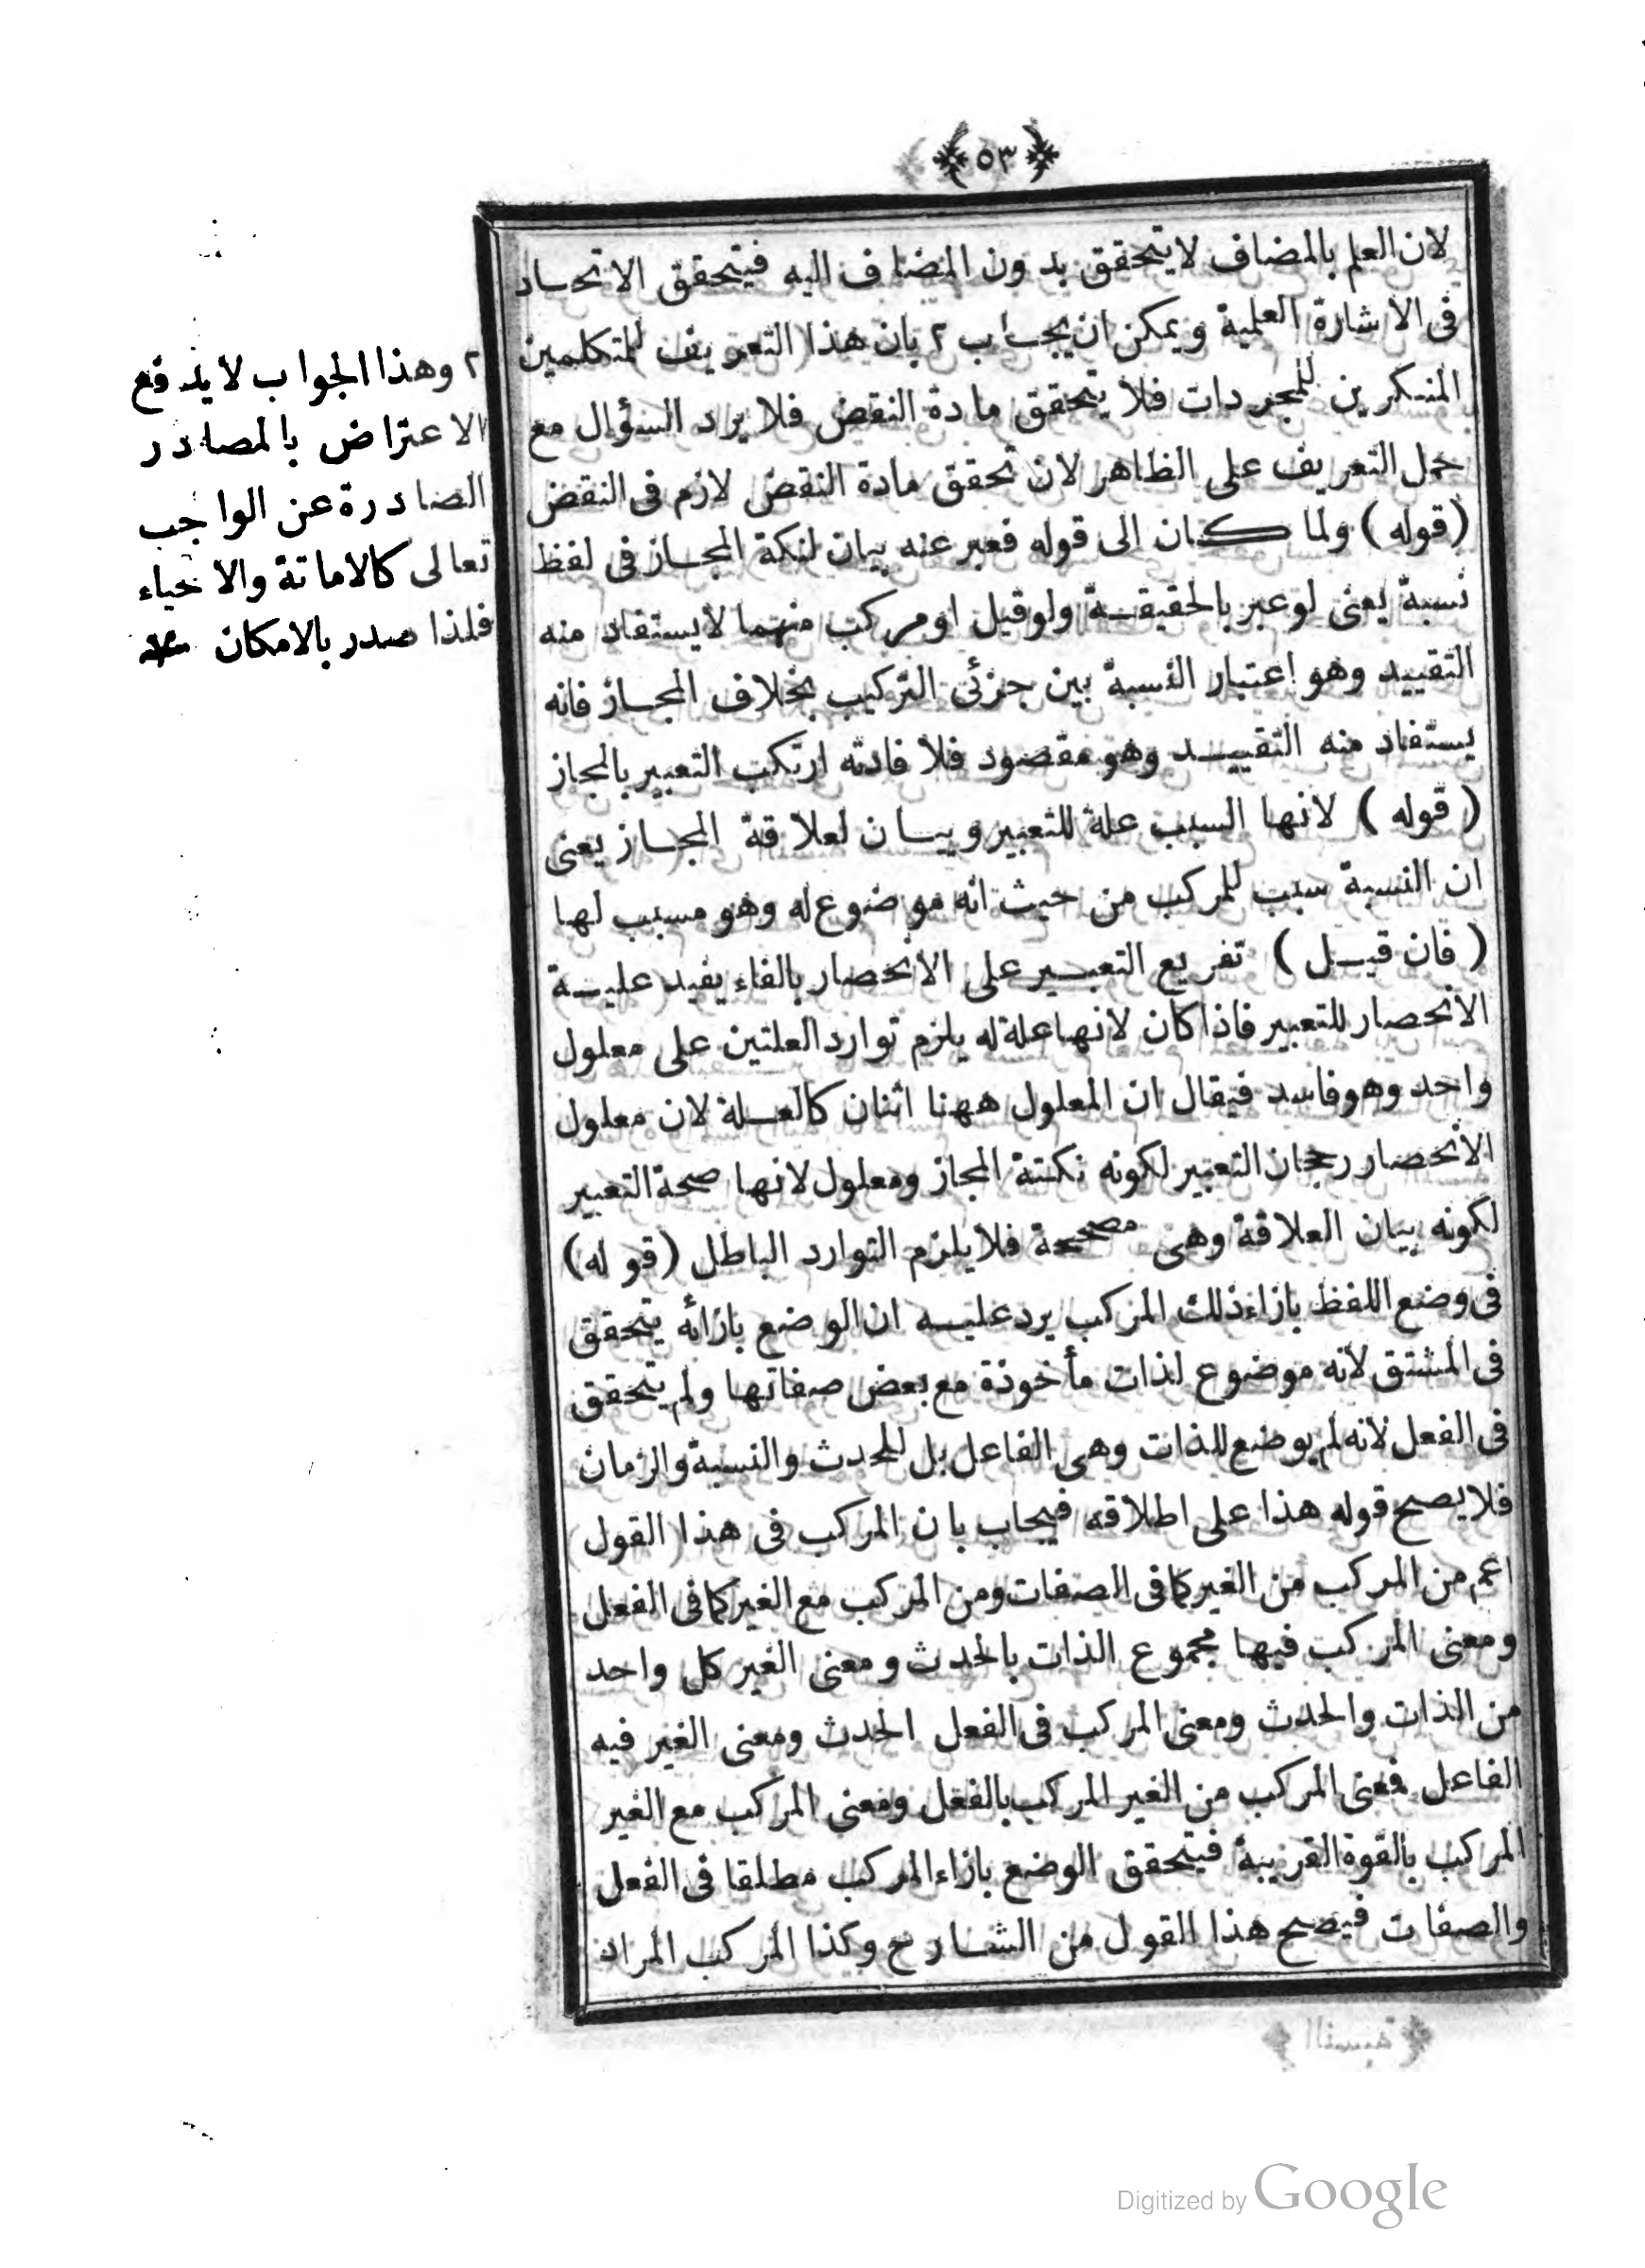 ﴿ ٥٣ ﴾
لان العلم بالمضاف لا يتحقق بدون المضاف اليه فيتحقق الاتحاد
فى الاشارة العلمية ويمكن ان يجاب ٢ بان هذا التعريف للمتكلمين
المنكرين للمجردات فلا يتحقق مادة النقض فلا يرد السؤال مع
حمل التعريف على الظاهر لان تحقق مادة النقض لازم فى النقض
(قوله) ولما كان الى قوله فعبر عنه بيان لنكة المجاز فى لفظ
نسبة يعنى لو عبر بالحقيقة ولو قيل او مركب منهما لا يستفاد منه
التقييد وهو اعتبار النسبة بين جزئى التركيب بخلاف المجاز فانه
يستفاد منه التقييد وهو مقصود فلا فادته ارتكب التعبير بالمجاز
(قوله) لانها السبب علة للتعبير وبيان لعلاقة المجاز يعنى
ان النسبة سبب للمركب من حيث انه موضوع له وهو مسبب لها
(فان قيل) تفريع التعبير على الانحصار بالفاء يفيد علية
الانحصار للتعبير فاذا كان لانها علة له يلزم توارد العلتين على معلول
واحد وهو فاسد فيقال ان المعلول ههنا اثنان كالعلة لان معلول
الانحصار رجحان التعبير لكونه نكتة المجاز ومعلول لانها صحة التعبير
لكونه بيان العلاقة وهى مصححة فلا يلزم التوارد الباطل (قوله)
فى وضع اللفظ بازاء ذلك المركب يرد عليه ان الوضع بازائه يتحقق
فى المشتق لانه موضوع لذات مأخوذة مع بعض صفاتها ولم يتحقق
فى الفعل لانه لم يوضع للذات وهى الفاعل بل للحدث والنسبة والزمان
فلا يصح قوله هذا على اطلاقه فيجاب بان المركب فى هذا القول
اعم من المركب من الغير كما فى الصفات ومن المركب مع الغير كما فى الفعل
ومعنى المركب فيها مجموع الذات بالحدث ومعنى الغير كل واحد
من الذات والحدث ومعنى المركب فى الفعل الحدث ومعنى الغير فيه
الفاعل فمعنى المركب من الغير المركب بالفعل ومعنى المركب مع الغير
المركب بالقوة القريبة فيتحقق الوضع بازاء المركب مطلقا فى الفعل
والصفات فيصح هذا القول من الشارح وكذا المركب المراد
٢ وهذا الجواب لا يدفع
الاعتراض بالمصادر
الصادرة عن الواجب
تعالى كالاماتة والاحياء
فلذا صدر بالامكان
Digitized by Google